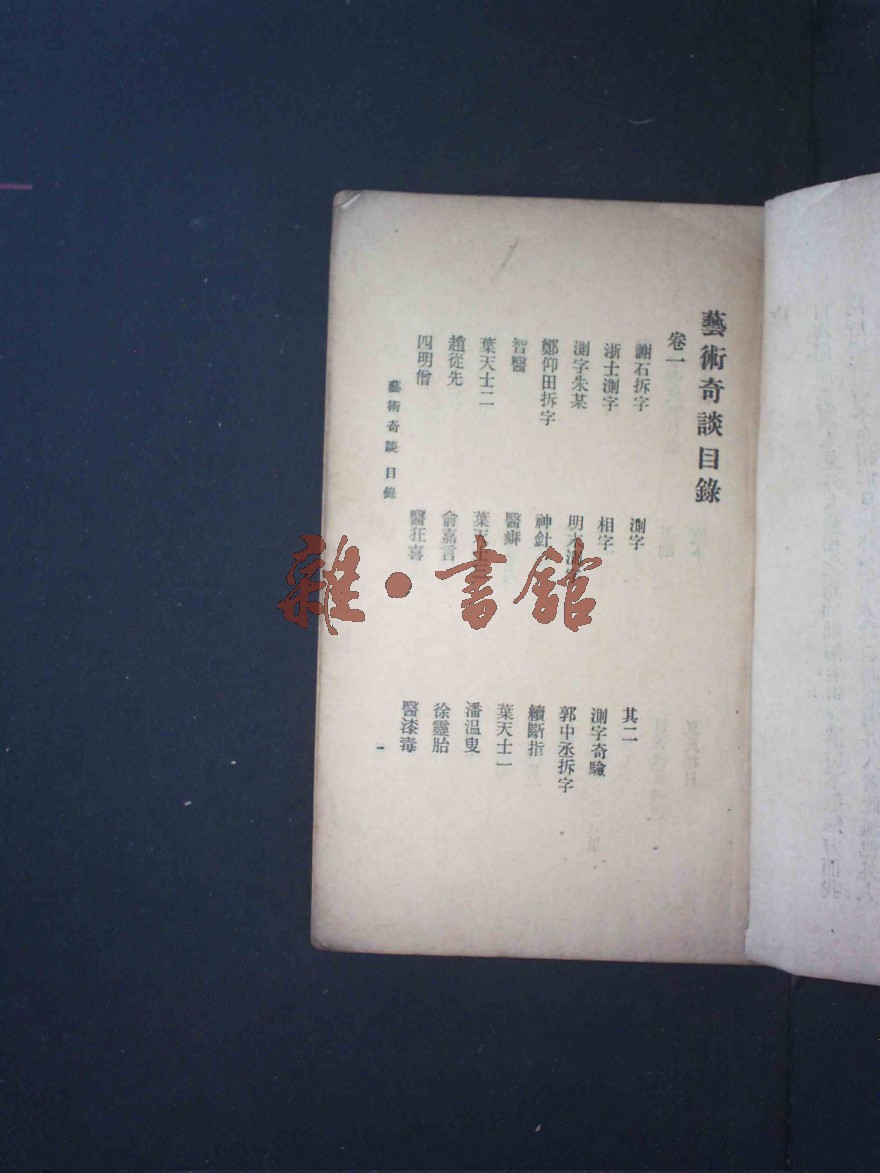 藝術奇談目錄
卷一
謝石拆字 測字 其二
浙士測字 相字 測字奇驗
測字朱某 明末測 郭中丞拆字
鄭仰田拆字 神針 續斷指
智醫 醫癖 葉天士一
葉天士二 葉天士三 潘溫叟
趙從先 俞嘉言 徐靈胎
四明僧 醫狂喜 醫漆毒
藝術奇談 目錄 一
雜·書館